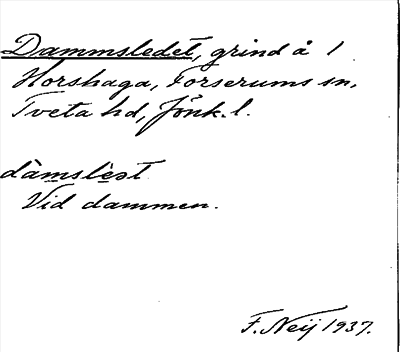 Dammsledet, grind å 1
Horshaga, Forserums sn,
Tveta hd, Jönk. l.
dàmslèst
Vid dammen.
F. Neij 1937.